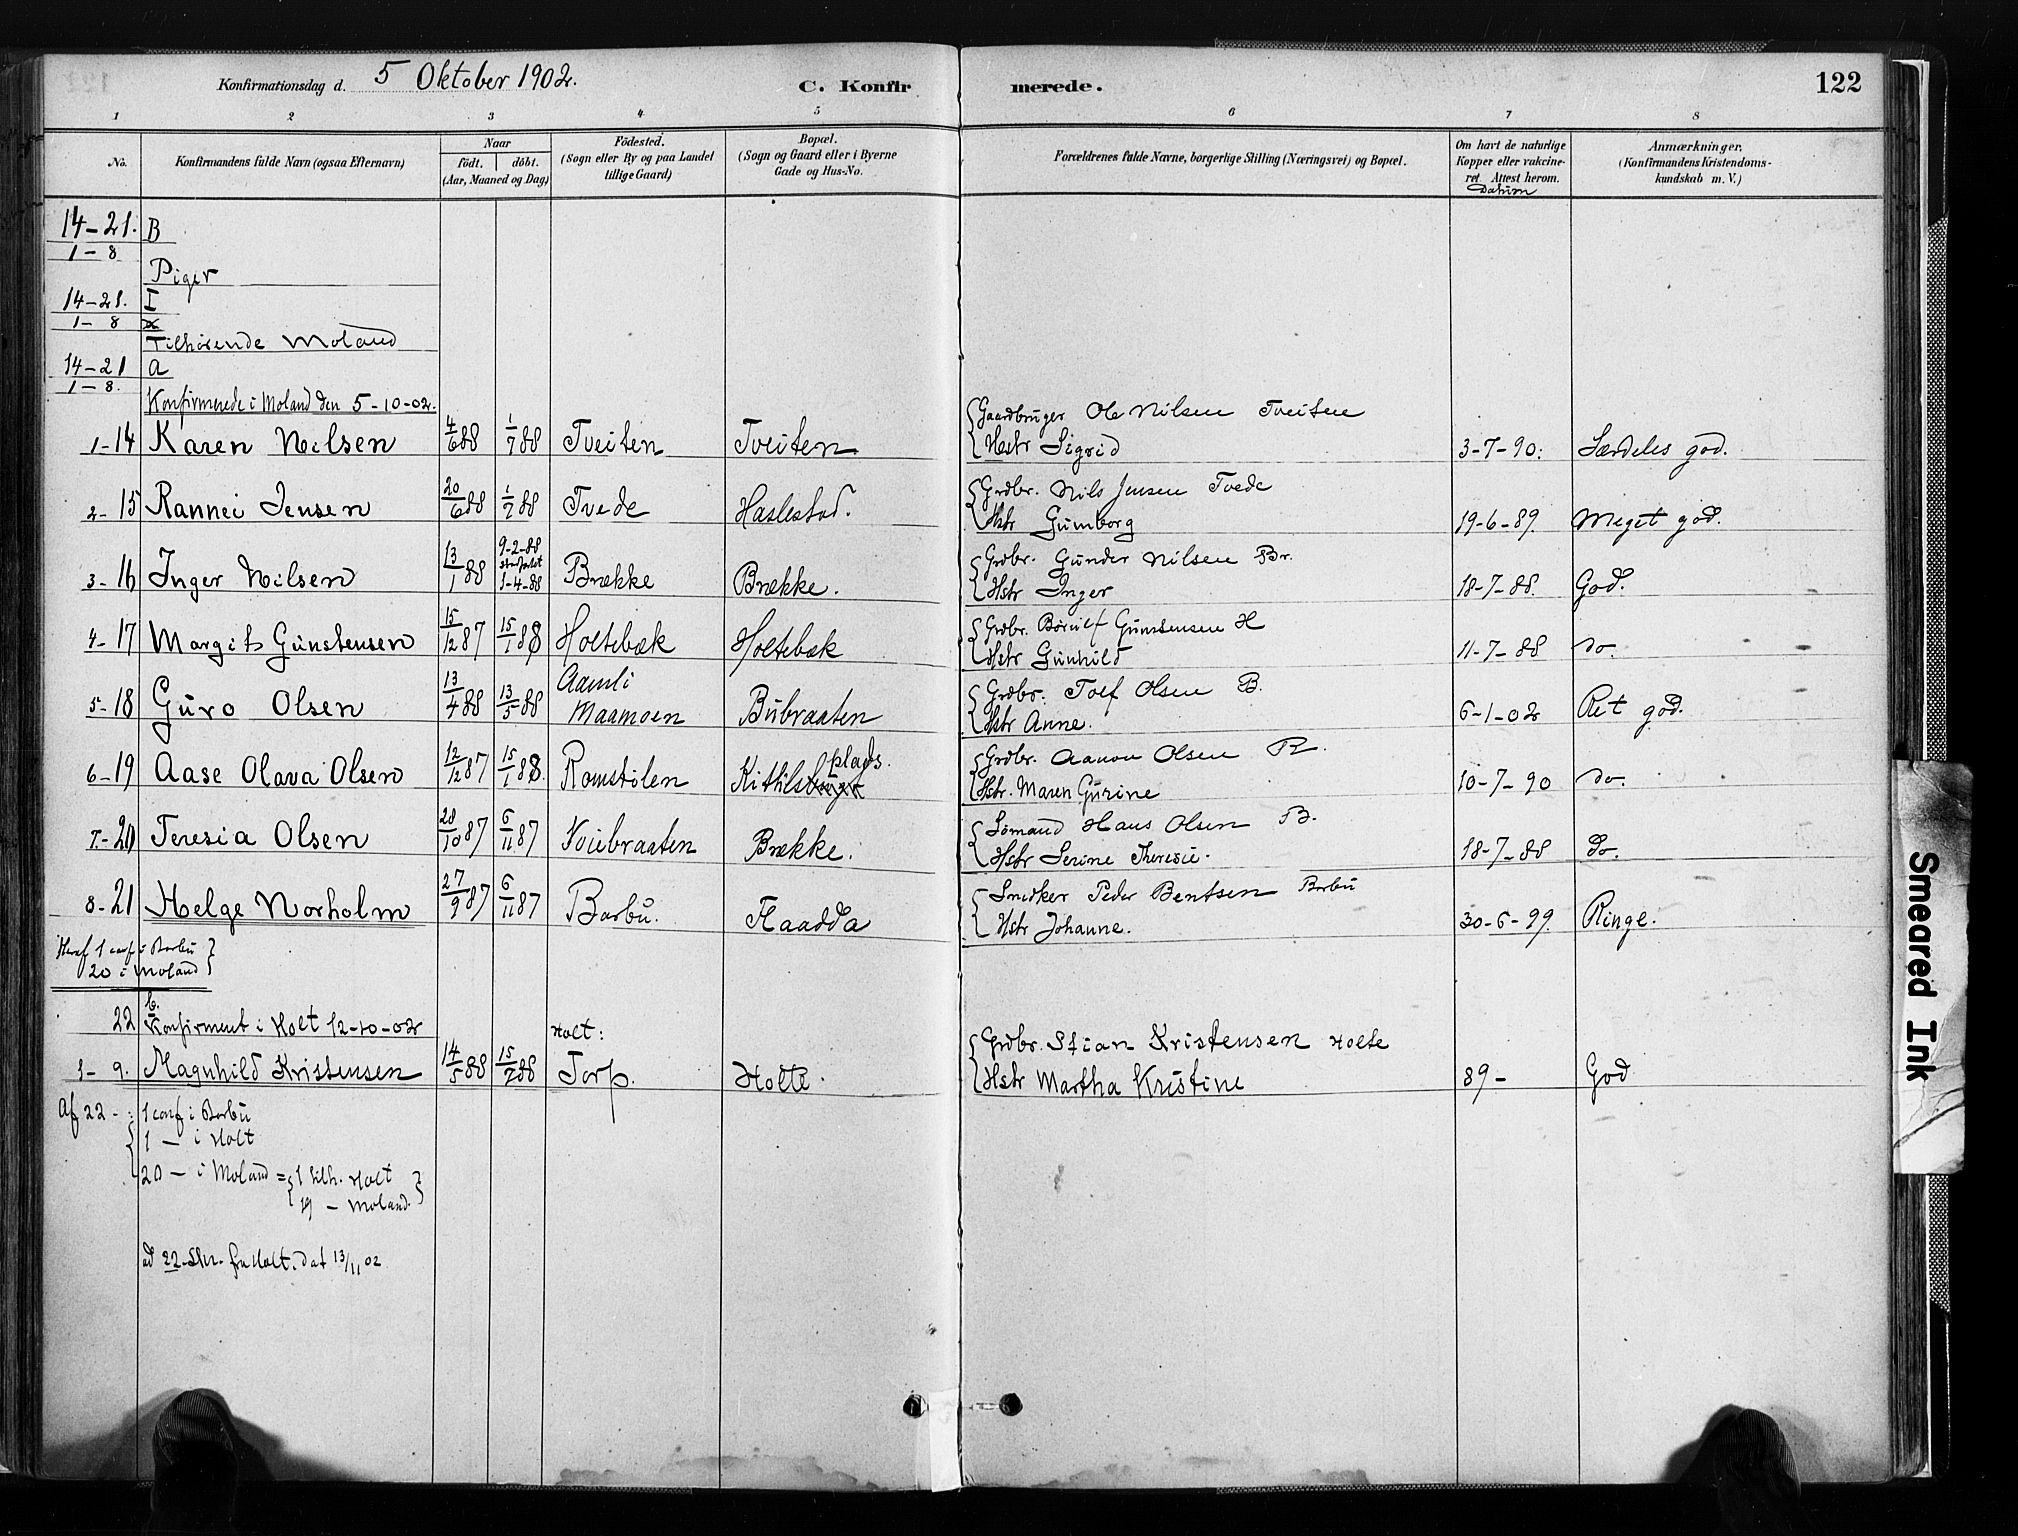 Konfirmationsdag d. 5 Oktober 1902. C. Konfir merede. 122
1 2 3 4 5 6 7 8
No. Konfirmandens fulde Navn (ogsaa Efternavn) Naar födt. döbt. (Aar, Maaned og Dag) Födested. (Sogn eller By og paa Landet tillige Gaard) Bopæl. (Sogn og Gaard eller i Byerne Gade og Hus-No. Forældrenes fulde Navne, borgerlige Stilling (Næringsvei) og Bopæl. Om havt de naturlige Kopper eller vakcineret. Attest herom. Datum Anmærkninger. (Konfirmandens Kristendomskundskab m. V.)
14-21. B
1-8
Piger
14-21. I
1-8
Tilhørende Moland
14-21 a
1-8.
Konfirmerede i Moland den 5-10-02.
Gaardbruger Ole Nilsen Tveiten
1-14 Karen Nilsen 4/6 88 1/7 88 Tveiten Tveiten Hstr Sigrid 3-7-90. Særdeles god.
Grdbr. Nils Jensen Tvede
2-15 Rannei Jensen 20/6 88 1/7 88 Tvede Haslestad. Hstr Gumborg 19-6-89. Meget god.
9-2-88
Grdbr. Gunder Nilsen Br.
3-16 Inger Nilsen 13/1 88 1-4-88 Brække Brække. Hstr Inger 18-7-88. God.
Grdbr. Børulf Gunstensen H
4-17 Margit Gunstensen 15/12 87 15/1 88 Holtebæk Holtebæk Hstr Gunhild 11-7-88 do.
Aamli Grdbr. Tolf Olsen B.
5-18 Guro Olsen 13/4 88 13/5 88 Maamoen Bubraaten Hstr Anne. 6-1-02 Ret god.
plads. Grdbr. Aanon Olsen R.
6-19 Aase Olava Olsen 12/12 87 15/1 88. Romstølen Kittils Hstr. Maren Gurine 10-7-90 do.
Sømand Hans Olsen B.
7-20 Teresia Olsen 28/10 87 6/11 87 Voiebraaten Brække. Hstr Serine Theresie. 18-7-88 do.
Snedker Peder Bentsen Barbu
8-21 Helge Norholm 27/9 87 6/11 87 Barbu. Flaadda Hstr Johanne. 30-6-99. Ringe.
Heraf 1 conf i Barbu
20 i Moland
22 b. Konfirmert i Holt 12-10-02 Holt: Grdbr. Stian Kristensen Holte
1-9. Magnhild Kristensen 14/5 88 15/7 88 Torp. Holte. Hstr Martha Kristine 89- God
Af 22-: 1 conf i Barbu
1 — i Holt
20 — i Moland = 1 tilh. Holt
19 — Moland.
ad 22. Skr. fra Holt. dat 13/11 02
Smeared Ink